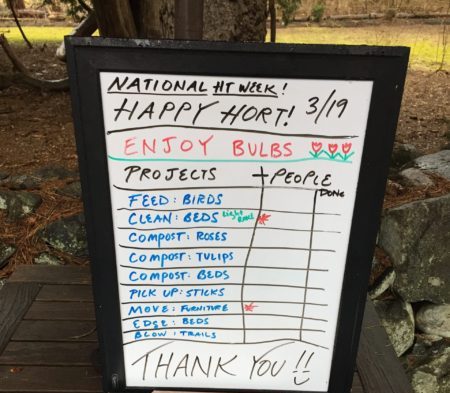 NATIONAL HT WEEK!
HAPPY HORT! 3/19
ENJOY BULBS
PROJECTS + PEOPLE
DONE
FEED: BIRDS
CLEAN: BEDS
COMPOST: ROSES
COMPOST: TULIPS
COMPOST: BEDS
PICK UP: STICKS
MOVE: FURNITURE
EDGE: BEDS
BLOW: TRAILS
THANK YOU!!